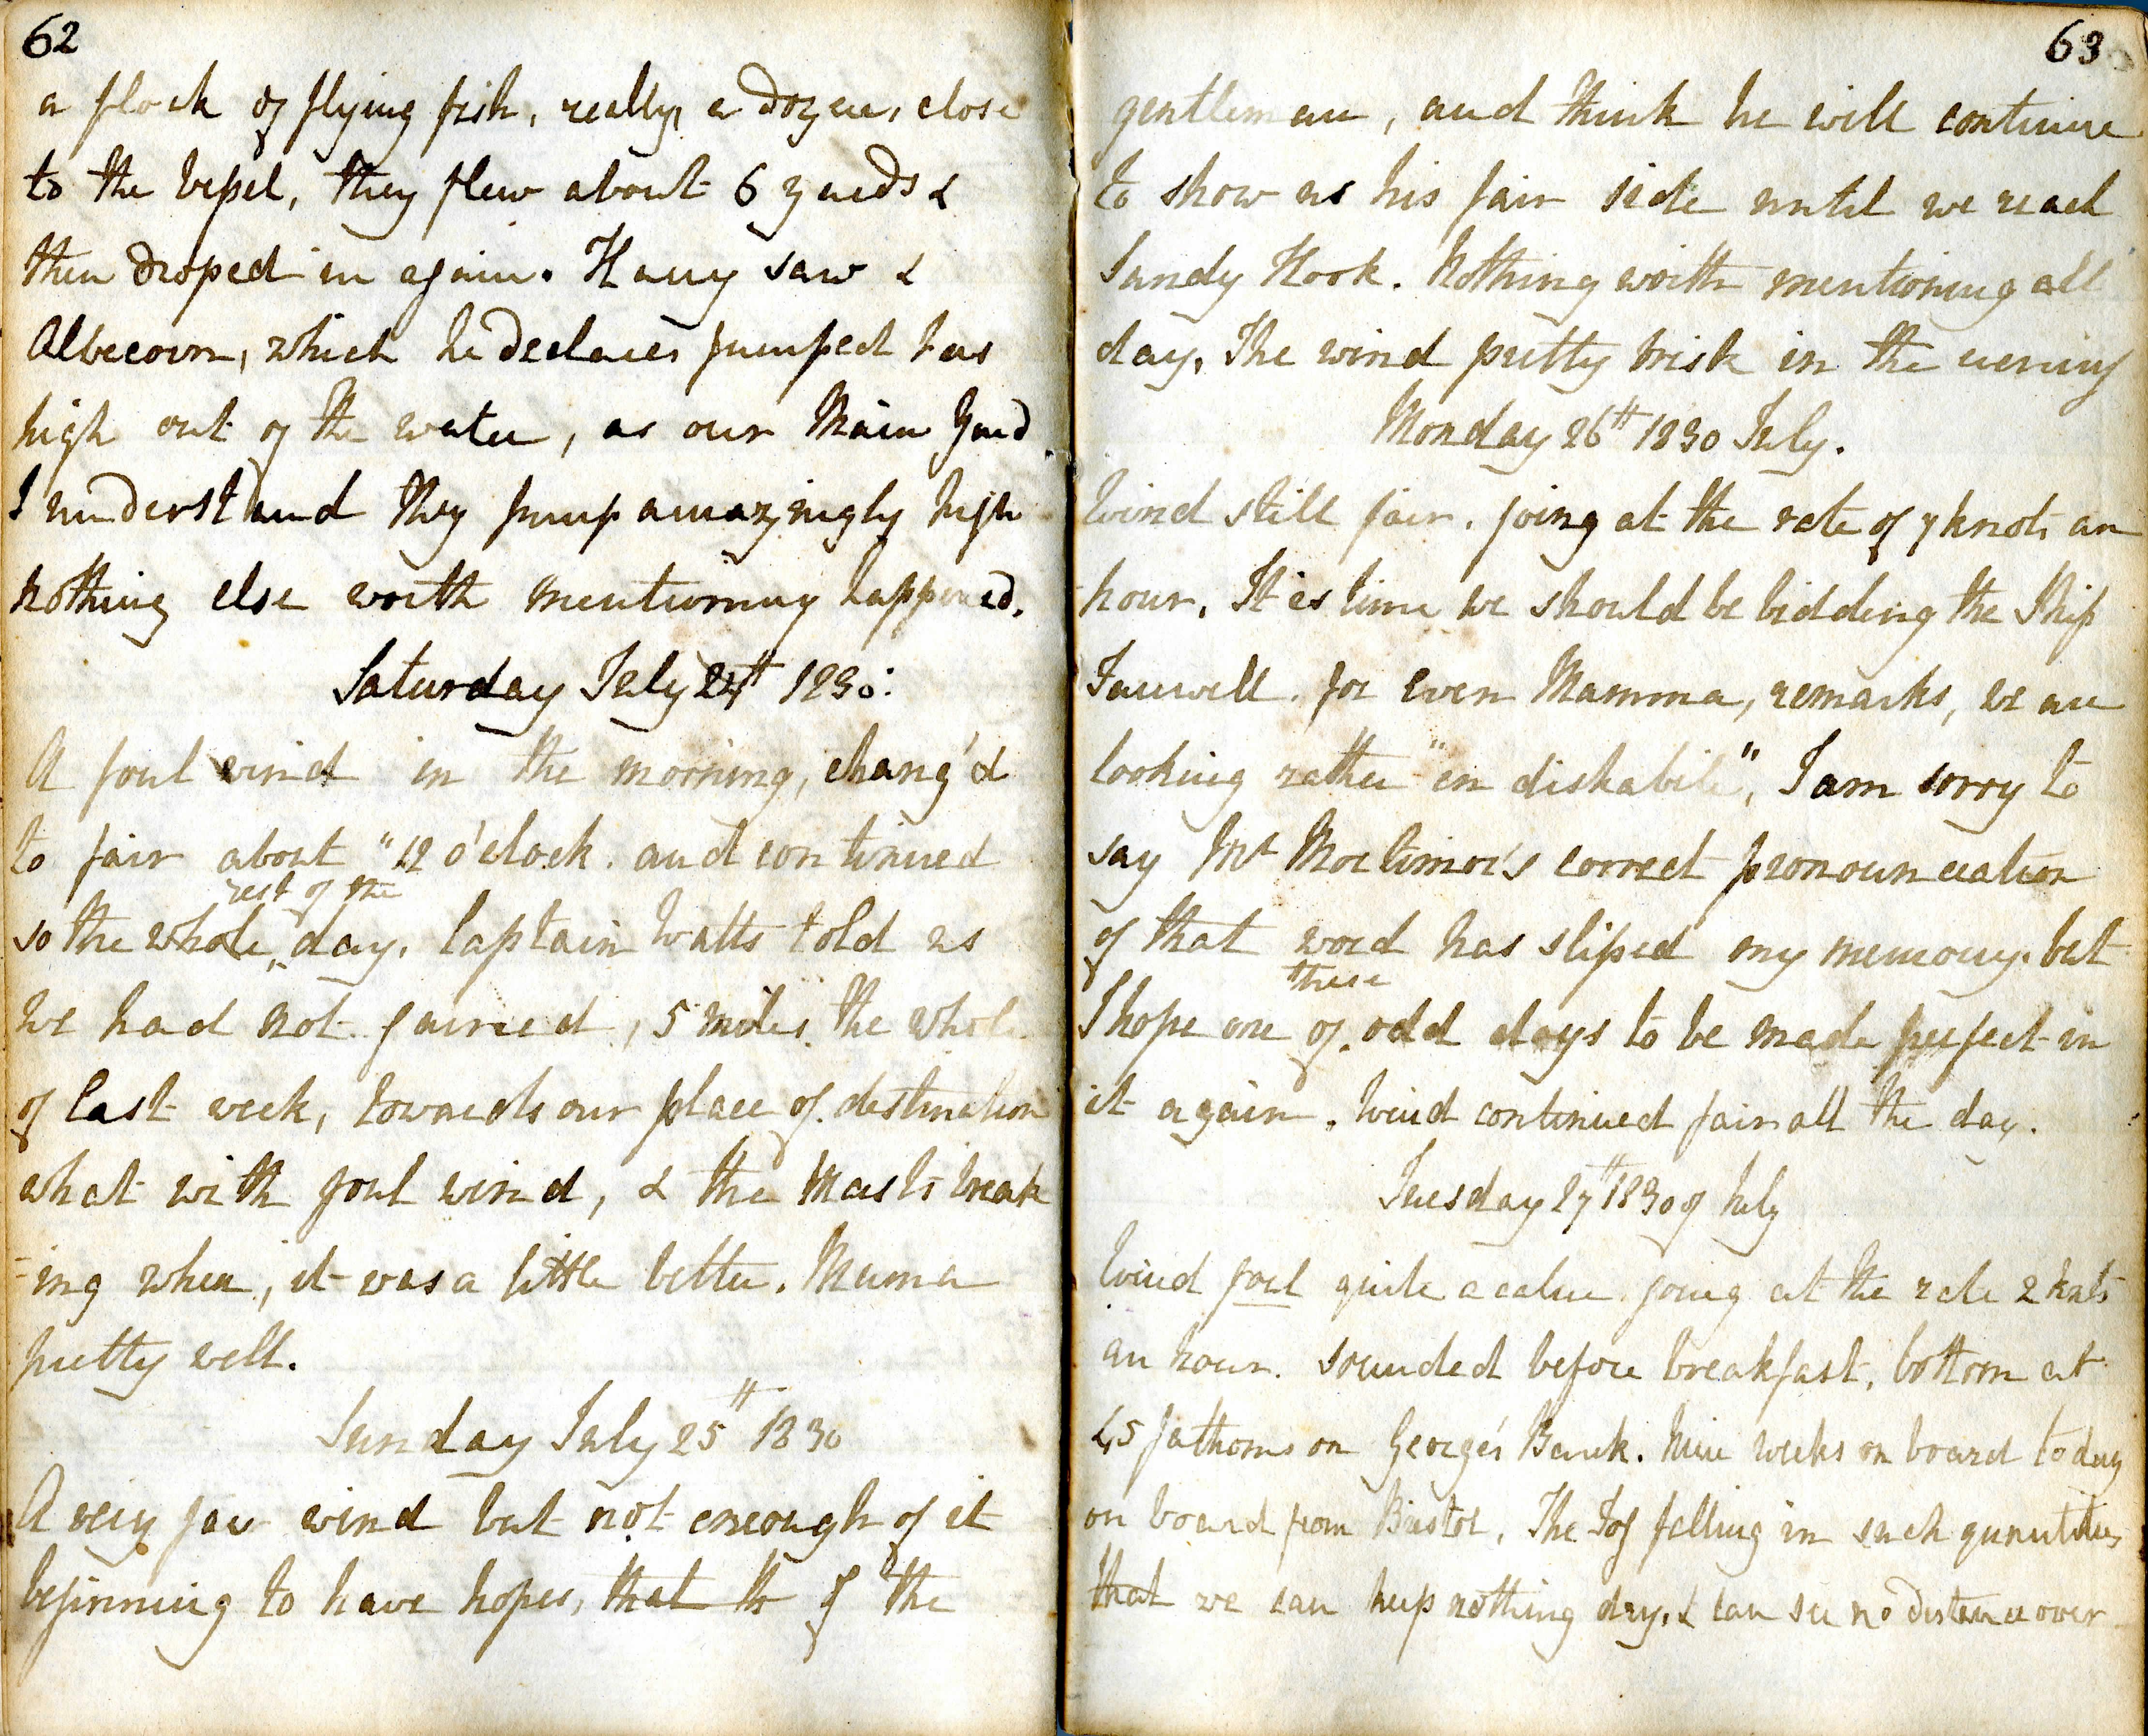 62
a flock of flying fish, really, a dozen, close
to the vessel, they flew about 6 yards &
then droped in again. Harry saw &
Albecorn, which he declares jumped has
high out of the water, as our Main Yard
I understand they jump amazingly high
nothing else worth mentioning happened.
Saturday July 24th 1830.
A foul wind in the morning, chang'd
to fair about "12 o'clock. and continued
rest of the
so the whole day. Captain Watts told us
we had not gained, 5 miles. the whole
of last week, towards our place of destination
what with foul wind, & the Masts break
-ing when, it was a little better. Mama
pretty well.
Sunday July 25th 1830
A very fair wind but not eneough of it
beginning to have hopes, that th of the
63
gentleman, and think he will continue
to show us his fair side until we reach
Sandy Hook. Nothing worth mentioning all
day. The wind pretty brisk in the evening
Monday 26th 1830 July.
Wind still fair. going at the rate of 7 knots an
hour. It is time we should be bidding the Ship
Farewell. for even Mamma, remarks, we are
looking rather "en dishabile", I am sorry to
say Mr Mortimor's correct pronounciation
of that word has sliped my memory. but
these
I hope one of odd days to be made perfect in
it again. Wind continued fair all the day.
Tuesday 27th 1830 of July
Wind foul quite a calm going at the rate 2 knts
an hour. sounded before breakfast, bottom at
45 fathoms on George's Bank. Nine weeks on board today
on board from Bristol. The Fog falling in such quantities
that we can keep nothing dry, & can see no distance over